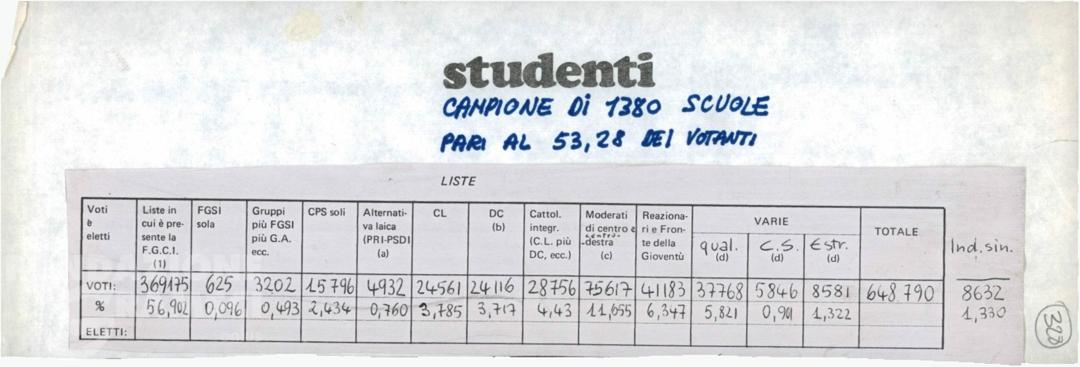 studenti
CAMPIONE Di 1380 SCUOLE
PARI AL 53,28 DEI VOTANTI
LISTE
Voti e eletti | Liste in cui è presente la F.G.C.I. (1) | FGSI sola | Gruppi più FGSI più G.A. ecc. | CPS soli | Alternativa laica (PRI-PSDI (a) | CL | DC (b) | Cattol. integr. (C.L. più DC, ecc.) | Moderati di centro e centro-destra (c) | Reazionari e Fronte della Gioventù | VARIE qual. (d) | C.S. (d) | Estr. (d) | TOTALE | Ind. sin.
VOTI: 369175 625 3202 15796 4932 24561 24116 28756 75617 41183 37768 5846 8581 648.790 8632
% 56,902 0,096 0,493 2,434 0,760 3,785 3,717 4,43 11,655 6,347 5,821 0,901 1,322 1,330
ELETTI:
328